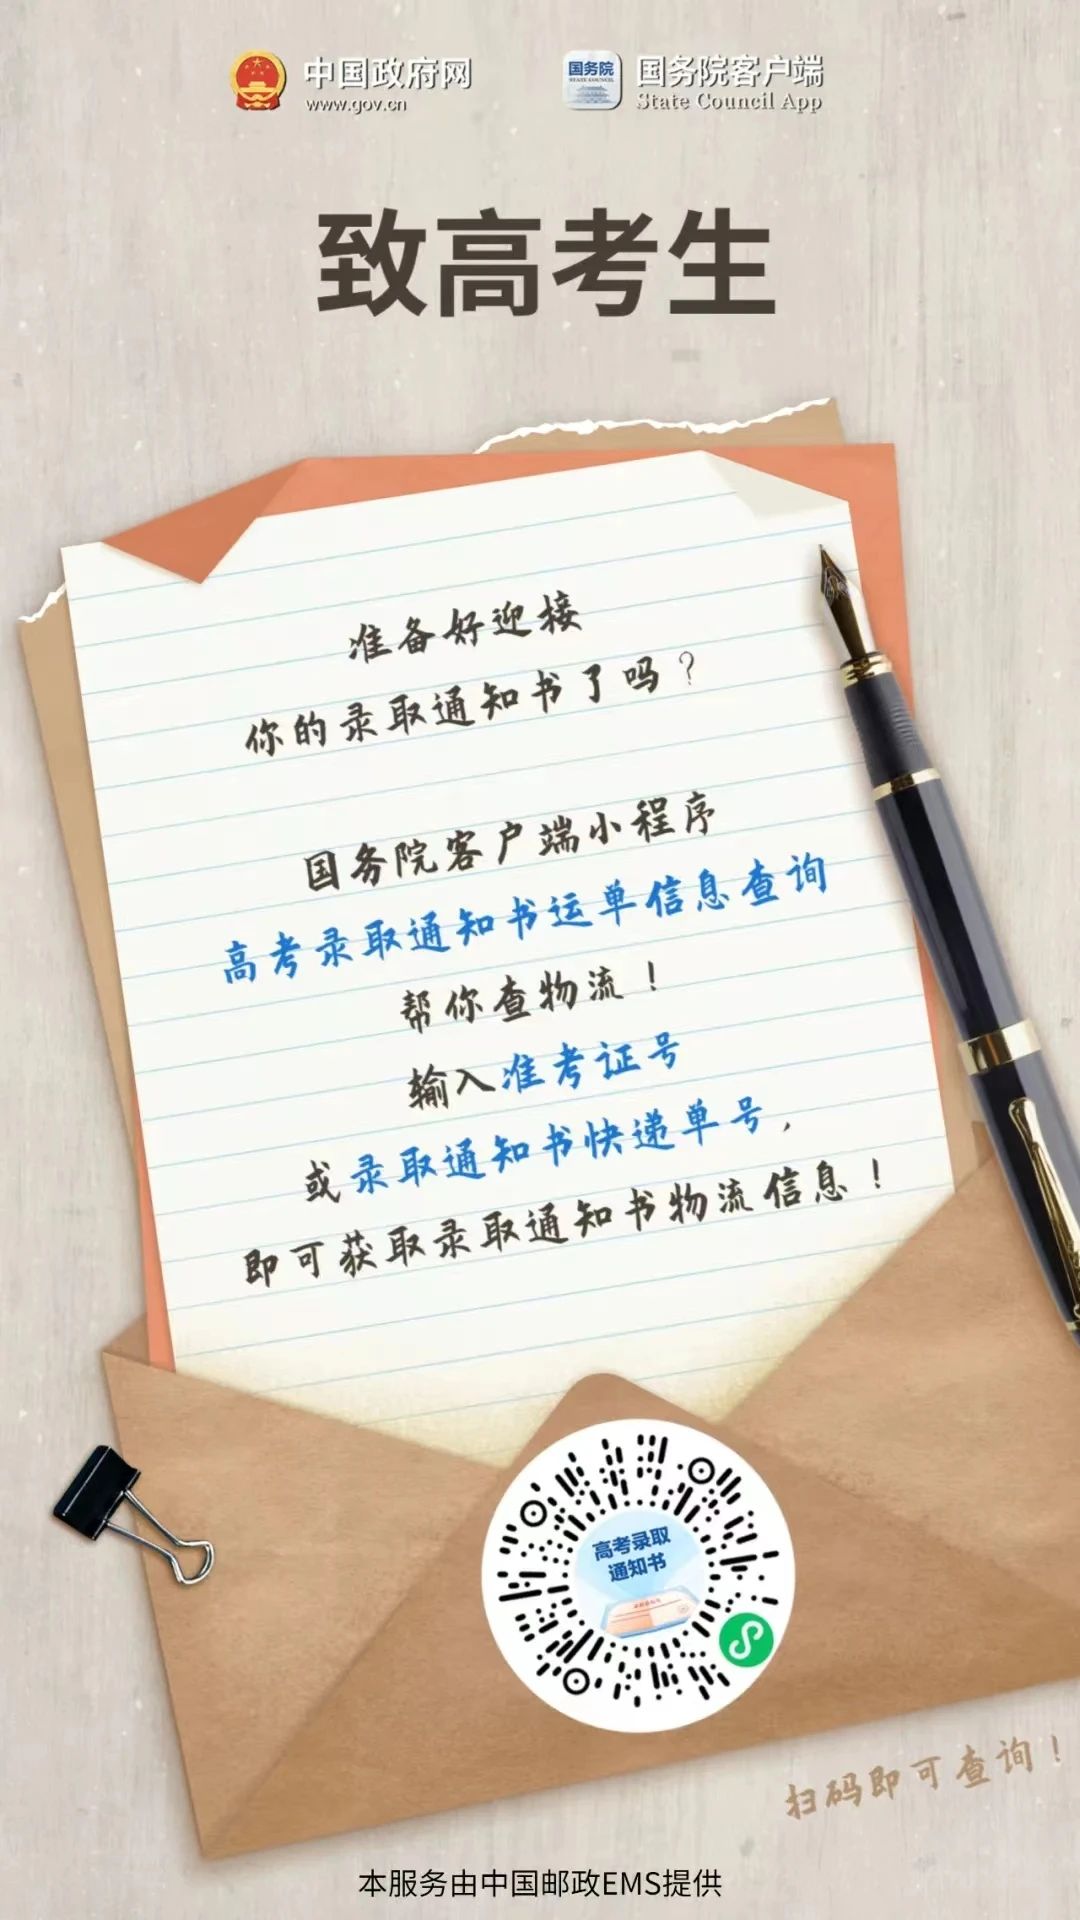 中国政府网
www.gov.cn
国务院
STATE COUNCIL
国务院客户端
State Council App
致高考生
准备好迎接
你的录取通知书了吗？
国务院客户端小程序
高考录取通知书运单信息查询
帮你查物流！
输入准考证号
或录取通知书快递单号，
即可获取录取通知书物流信息！
高考录取
通知书
扫码即可查询！
本服务由中国邮政EMS提供